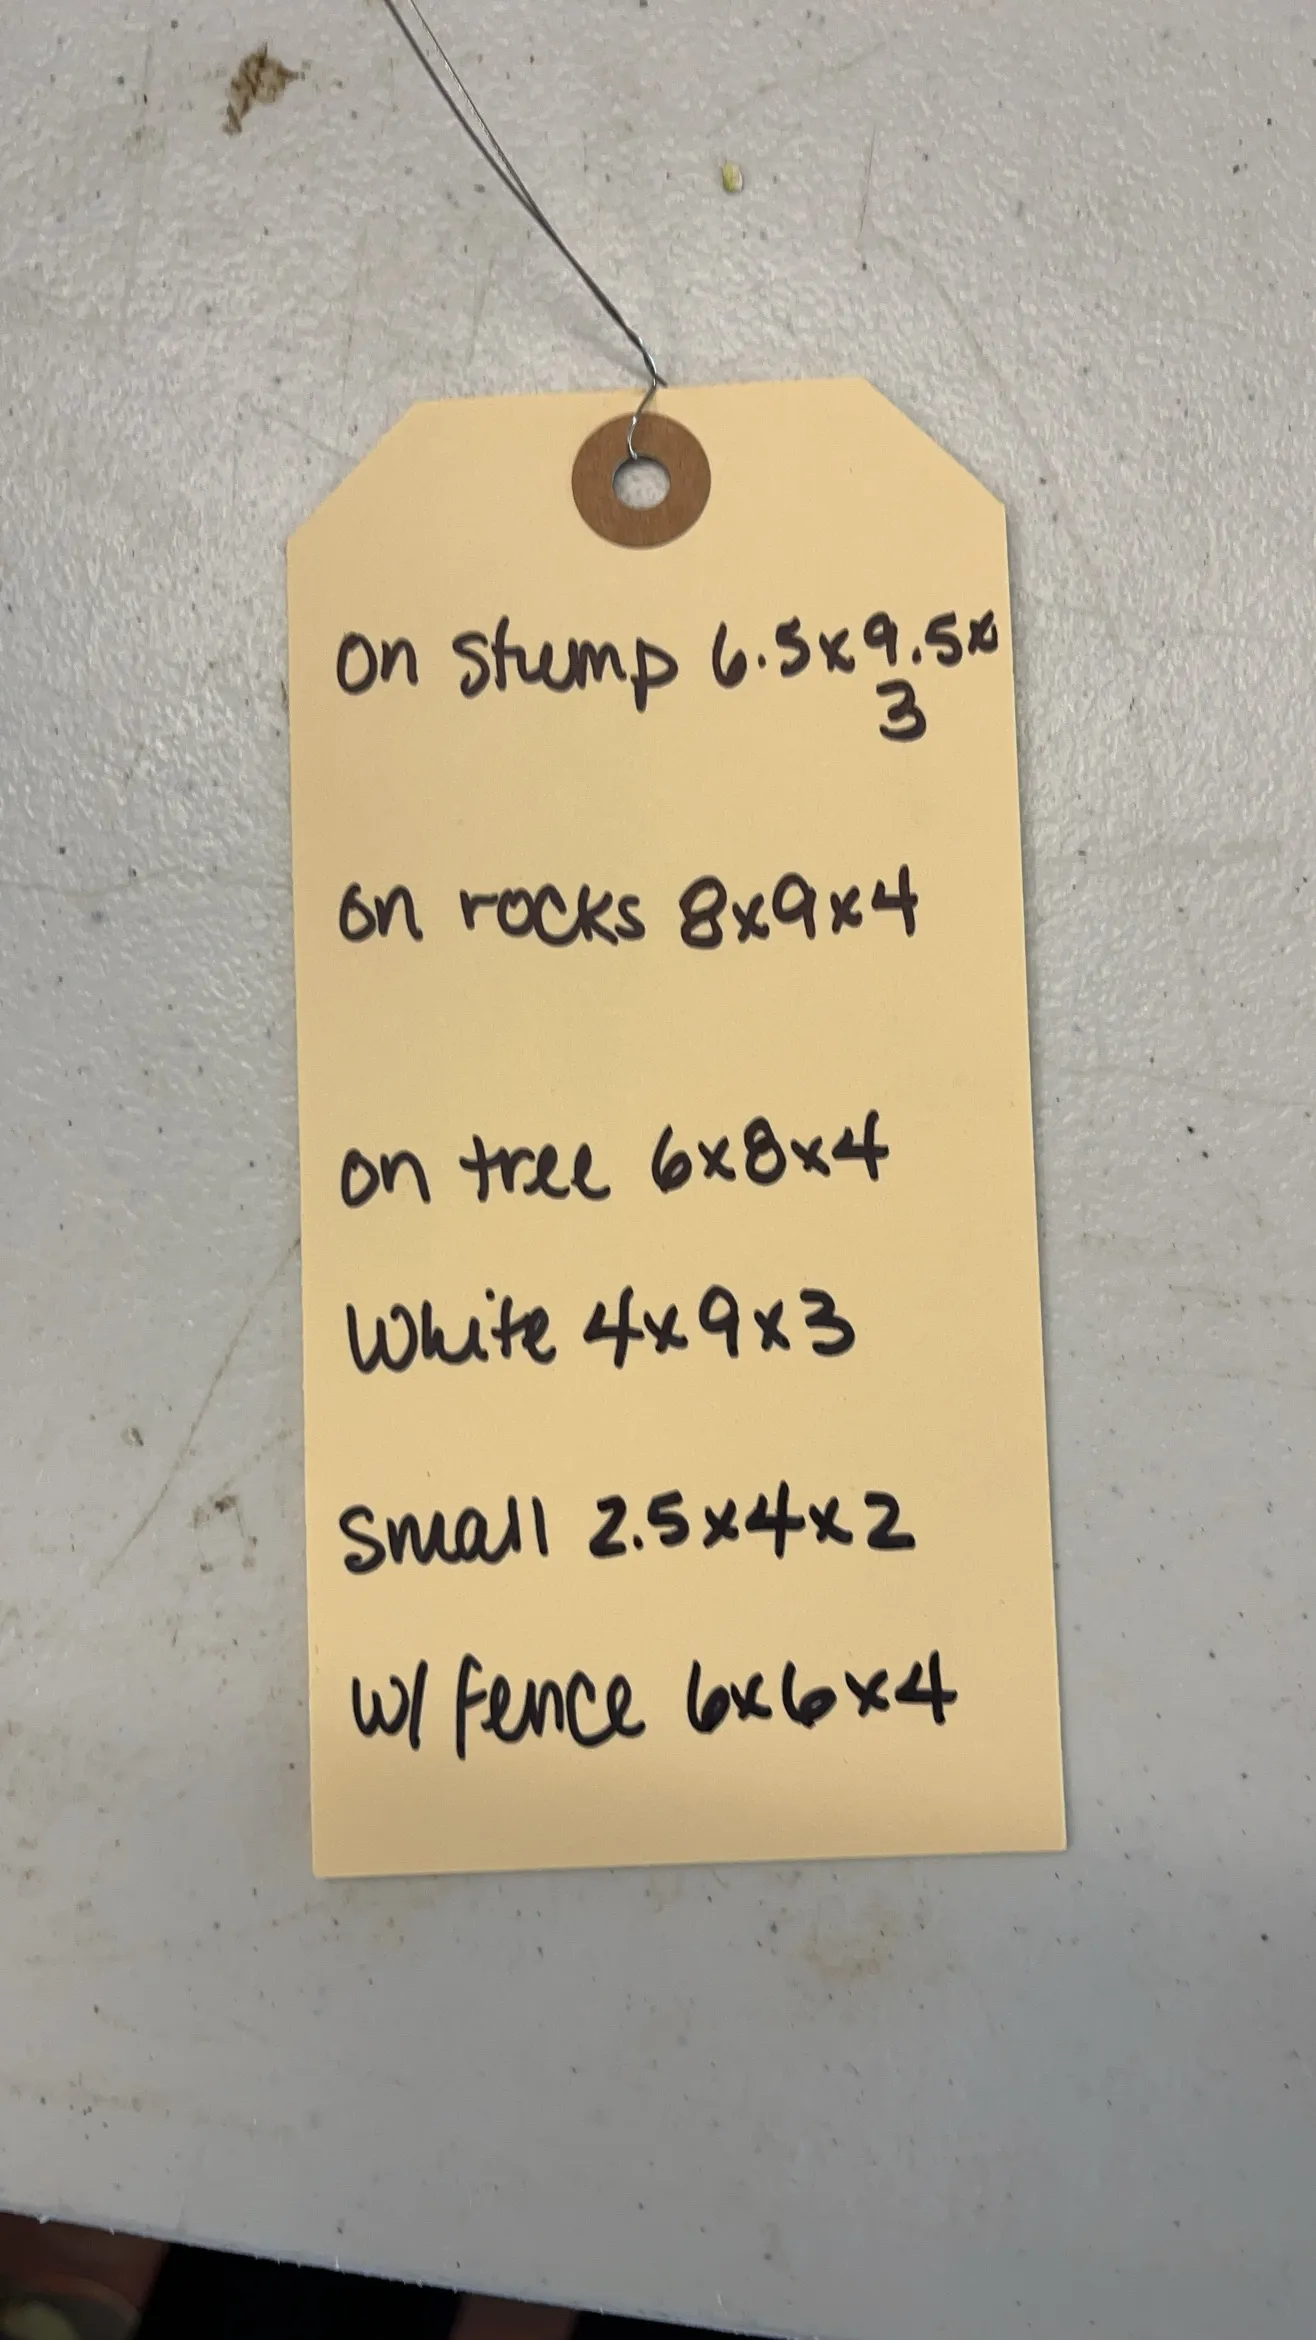 on stump 6.5x9.5x
3
on rocks 8x9x4
on tree 6x8x4
White 4x9x3
Small 2.5x4x2
w/ fence 6x6x4